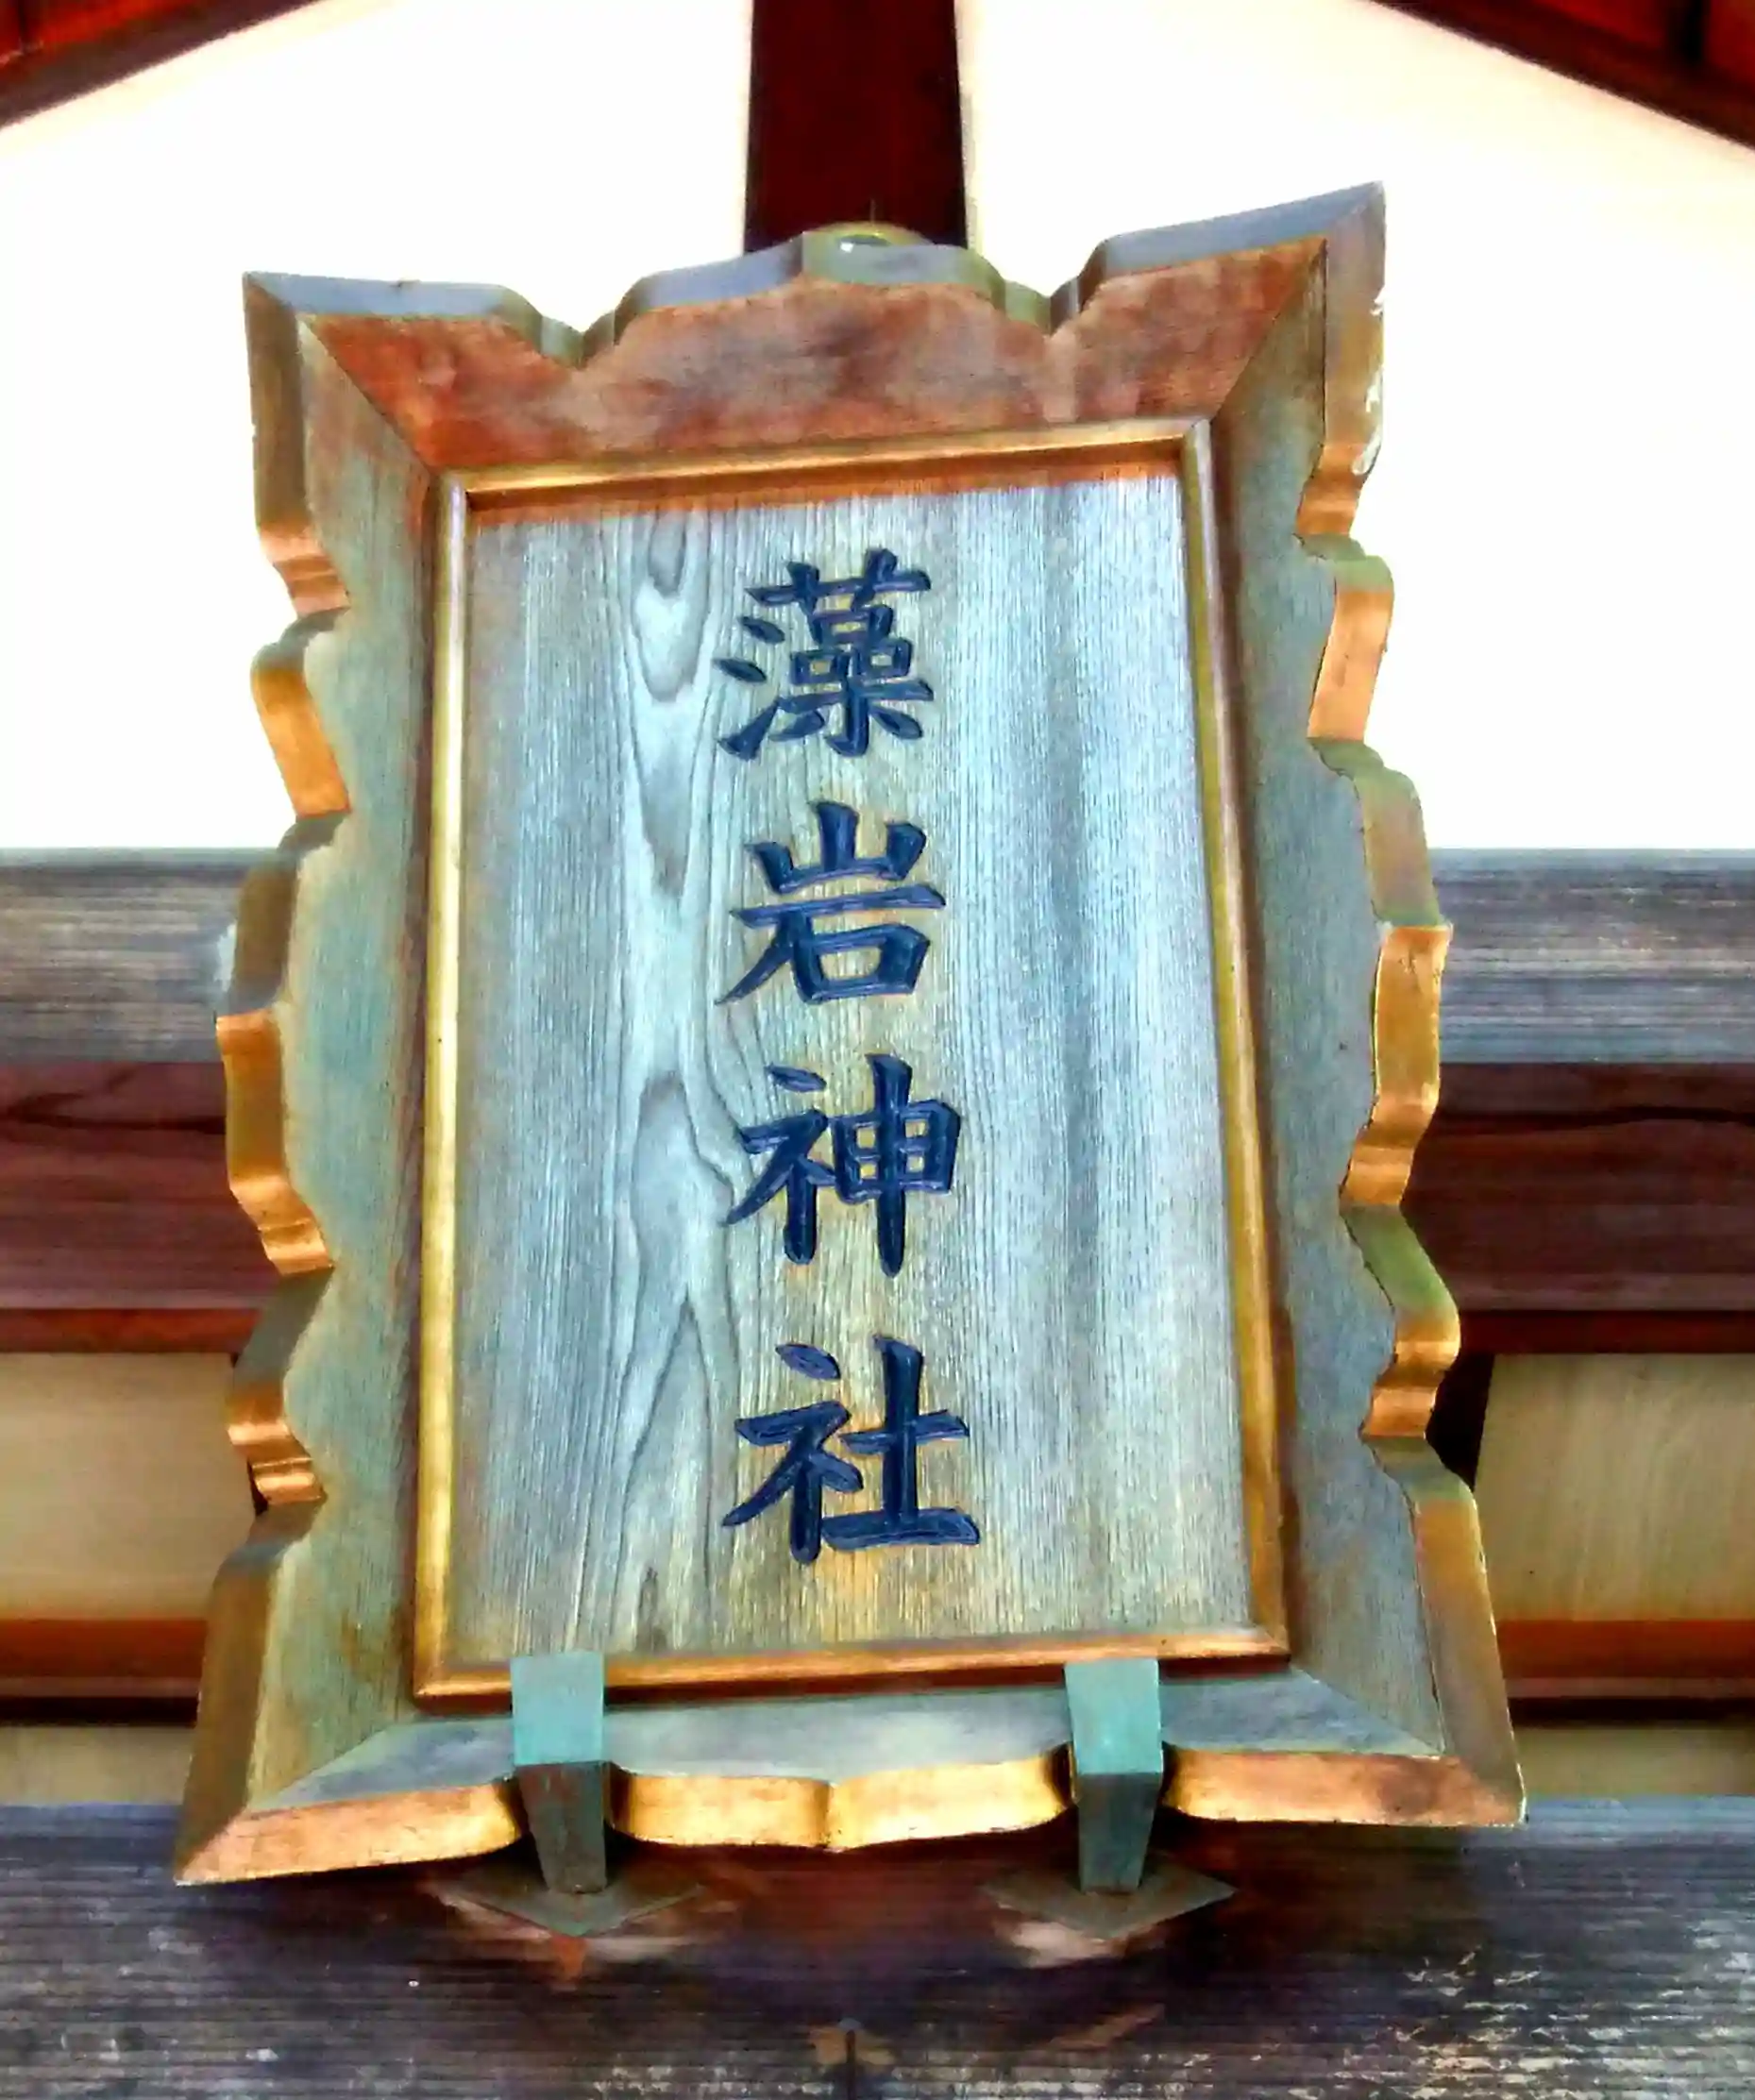 藻岩神社